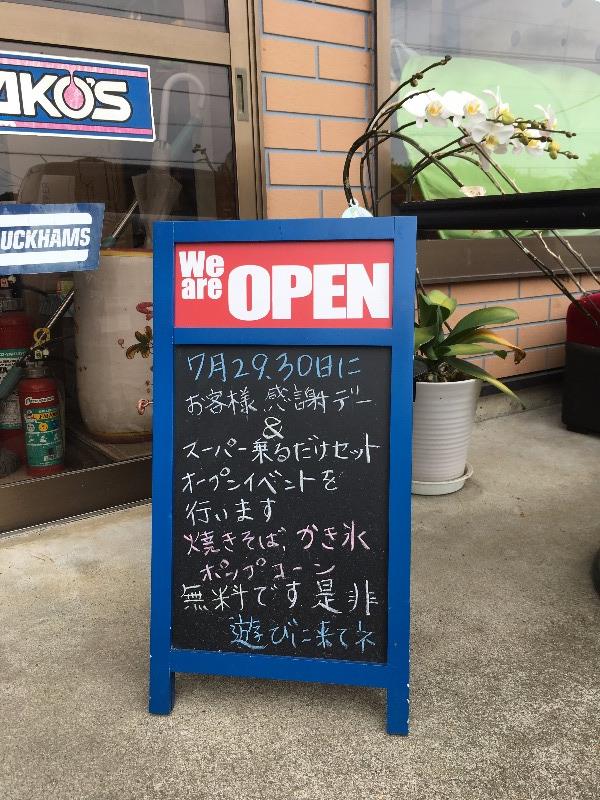 AKO'S
UCKHAMS
We
are OPEN
7月29.30日に
お客様感謝デー
&
スーパー乗るだけセット
オープンイベントを
行います
焼きそば、かき氷
ポップコーン
無料です是非
遊びに来てネ